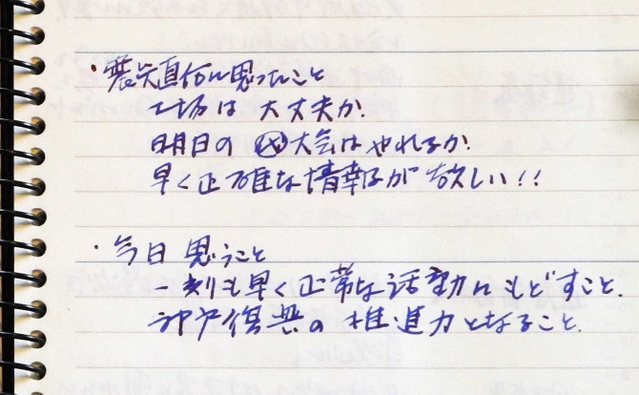 ・震災直何に思ったこと
工場は大丈夫か.
明日の 大会はやれるか.
早く正確な情報が欲しい!!
・今日思うこと
一刻も早く正常な活動にもどすこと.
神戸復興の推進力となること.